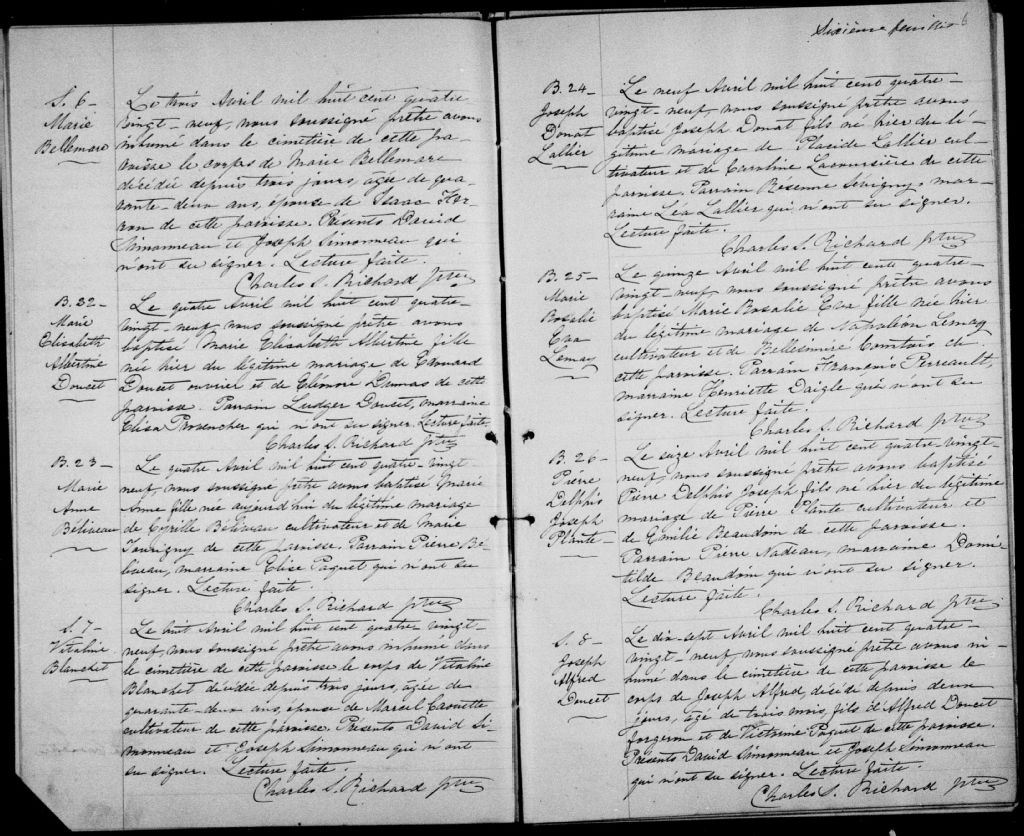 S. 6 —
Marie
Bellemare
Le trois Avril mil huit cent quatre
vingt-neuf, nous soussigné prêtre avons
inhumé dans le cimetière de cette pa-
roisse le corps de Marie Bellemare
décédée depuis trois jours, agée de qua-
rante-deux ans, épouse de Isaac
de cette paroisse. Présents David
Simonneau et Joseph Simonneau qui
n'ont su signer. Lecture faite.
Charles S. Richard ptre
B. 22 —
Marie
Elisabeth
Albertine
Doucet
Le quatre Avril mil huit cent quatre-
vingt-neuf, nous soussigné prêtre avons
baptisé Marie Elisabeth Albertine fille
née hier du légitime mariage de Edouard
Doucet ouvrier et de Elénore Dumas de cette
paroisse. Parrain Ludger Doucet, marraine
Elisa Provencher qui n'ont su signer. Lecture faite.
Charles S. Richard ptre
B. 23 —
Marie
Anne
Béliveau
Le quatre Avril mil huit cent quatre-vingt-
neuf, nous soussigné prêtre avons baptisé Marie
Anne fille née aujourd'hui du légitime mariage
de Cyrille Béliveau cultivateur et de Marie
Tourigny de cette paroisse. Parrain Pierre Bé-
liveau, marraine Elise Paquet qui n'ont su
signer. Lecture faite.
Charles S. Richard ptre
S. 7 —
Vitaline
Blanchet
Le huit Avril mil huit cent quatre vingt-
neuf, nous soussigné prêtre avons inhumé dans
le cimetière de cette paroisse le corps de Vitaline
Blanchet décédée depuis trois jours, agée de
quarante-deux ans, épouse de Marcel Caouette
cultivateur de cette paroisse. Présents David Si-
monneau et Joseph Simonneau qui n'ont
su signer. Lecture faite.
Charles S. Richard ptre
Sixième feuillet 6
B. 24 —
Joseph
Donat
Lallier
Le neuf Avril mil huit cent quatre-
vingt-neuf, nous soussigné prêtre avons
baptisé Joseph Donat fils né hier du lé-
gitime mariage de Placide Lallier cul-
tivateur et de Caroline de cette
paroisse. Parrain Sévigny, mar-
raine Léa Lallier qui n'ont su signer.
Lecture faite.
Charles S. Richard ptre
B. 25 —
Marie
Rosalie
Eva
Lemay
Le quinze Avril mil huit cent quatre-
vingt-neuf, nous soussigné prêtre avons
baptisé Marie Rosalie Eva fille née hier
du légitime mariage de Napoléon Lemay
cultivateur et de Comtois de
cette paroisse. Parrain François Perreault,
marraine Henriette Daigle qui n'ont su
signer. Lecture faite.
Charles S. Richard ptre
B. 26 —
Pierre
Delphis
Joseph
Plante
Le seize Avril mil huit cent quatre-vingt-
neuf, nous soussigné prêtre avons baptisé
Pierre Delphis Joseph fils né hier du légitime
mariage de Pierre Plante cultivateur et
de Emilie Beaudoin de cette paroisse.
Parrain Pierre Nadeau, marraine Domi-
tilde Beaudoin qui n'ont su signer.
Lecture faite.
Charles S. Richard ptre
S. 8 —
Joseph
Alfred
Doucet
Le dix-sept Avril mil huit cent quatre-
vingt-neuf, nous soussigné prêtre avons in-
humé dans le cimetière de cette paroisse le
corps de Joseph Alfred, décédé depuis deux
jours, agé de trois mois, fils d'Alfred Doucet
forgeron et de Victorine Paquet de cette paroisse.
Présents David Simonneau et Joseph Simonneau
qui n'ont su signer. Lecture faite.
Charles S. Richard ptre